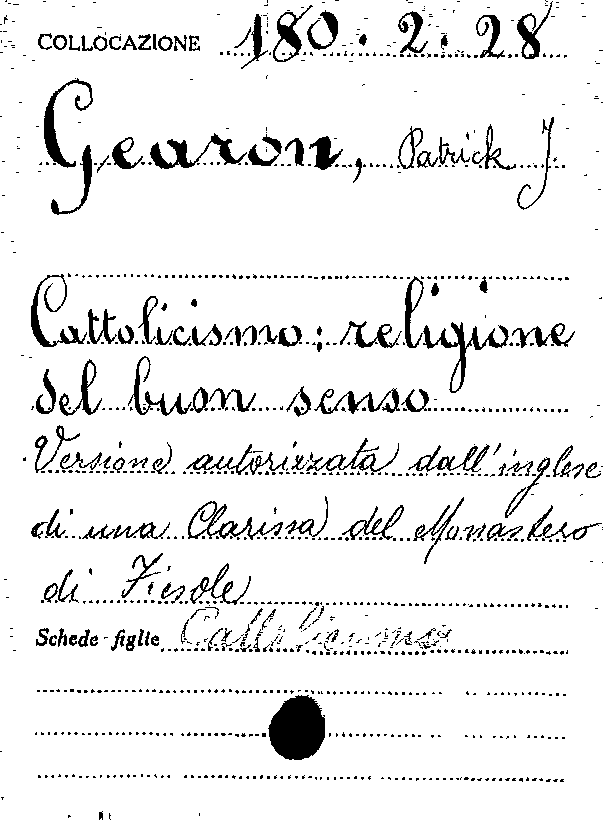 COLLOCAZIONE 180.2.28
Gearon, Patrick J.
Cattolicismo: religione
del buon senso
Versione autorizzata dall'inglese
di una Clarissa del Monastero
di Fiesole
Schede-figlie Cattolicismo